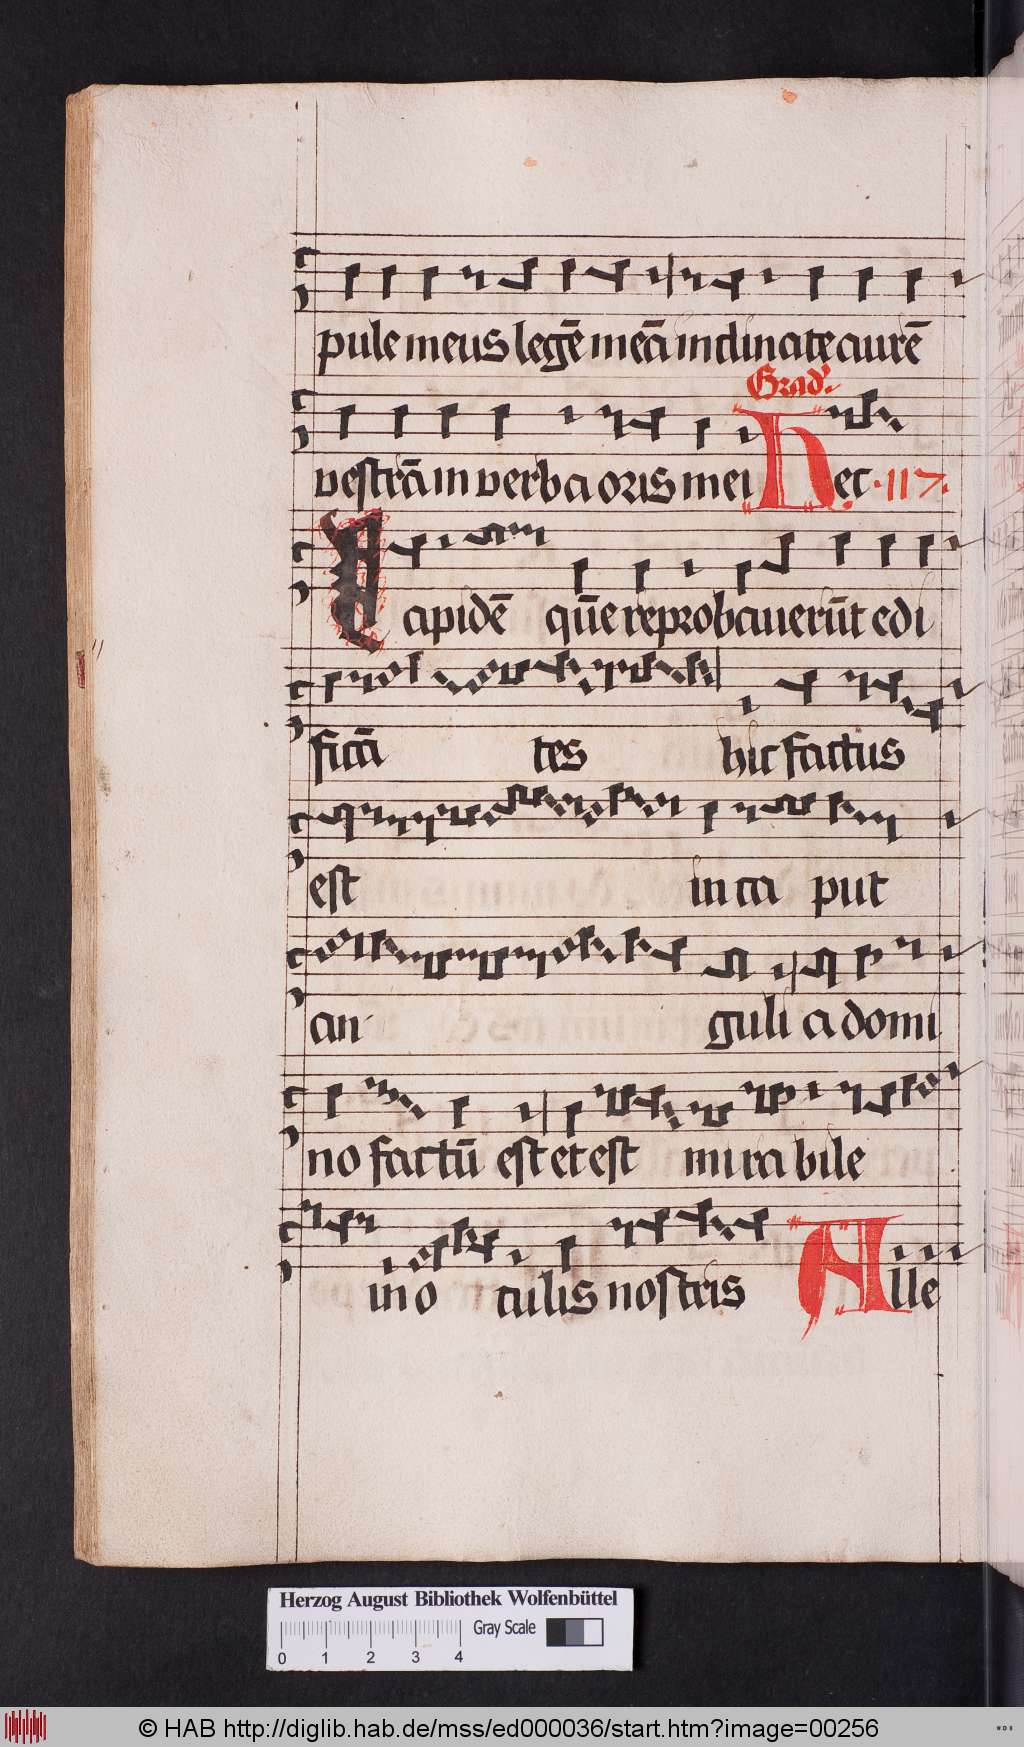 pule meus legē meā inclinate aurē
Grad'.
vestrā in verba oris mei Hec .117.
Lapidē quē reprobaverūt edi
ficā tes hic factus
est in ca put
an guli a domi
no factū est et est mi ra bile
in o culis nostris Alle
Herzog August Bibliothek Wolfenbüttel
Gray Scale
0 1 2 3 4
© HAB http://diglib.hab.de/mss/ed000036/start.htm?image=00256